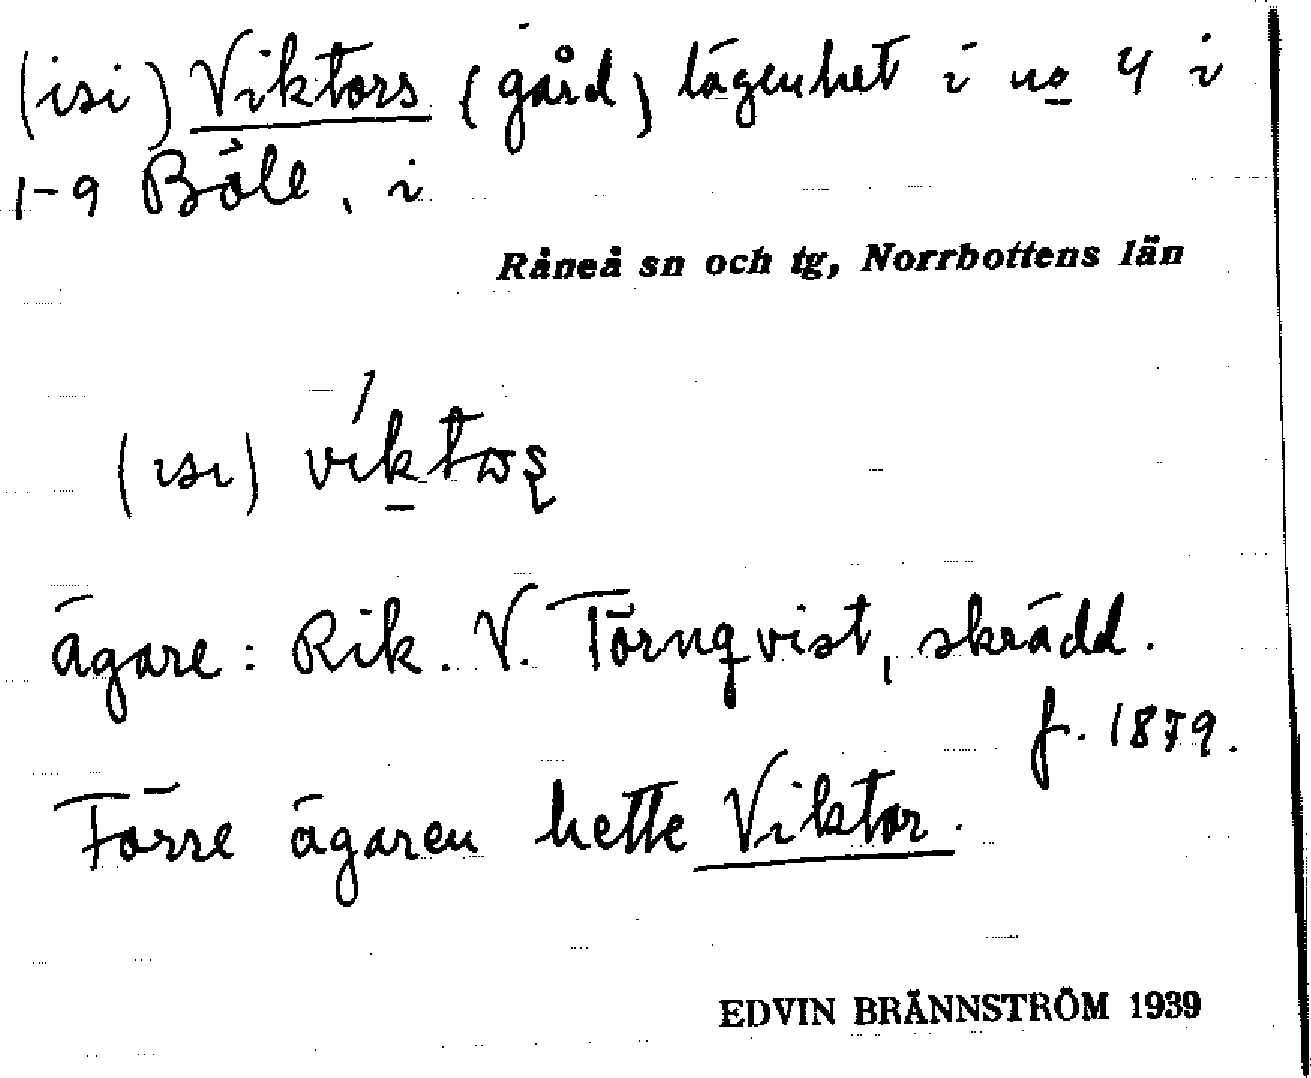 (isi) Viktors (gård) lägenhet i no 4 i
1-9 Böle, i
Råneå sn och tg, Norrbottens län
(isi)
ägare: Rik. V. Törnqvist, skrädd.
f. 1879.
Förre ägaren hette Viktor.
EDVIN BRÄNNSTRÖM 1939